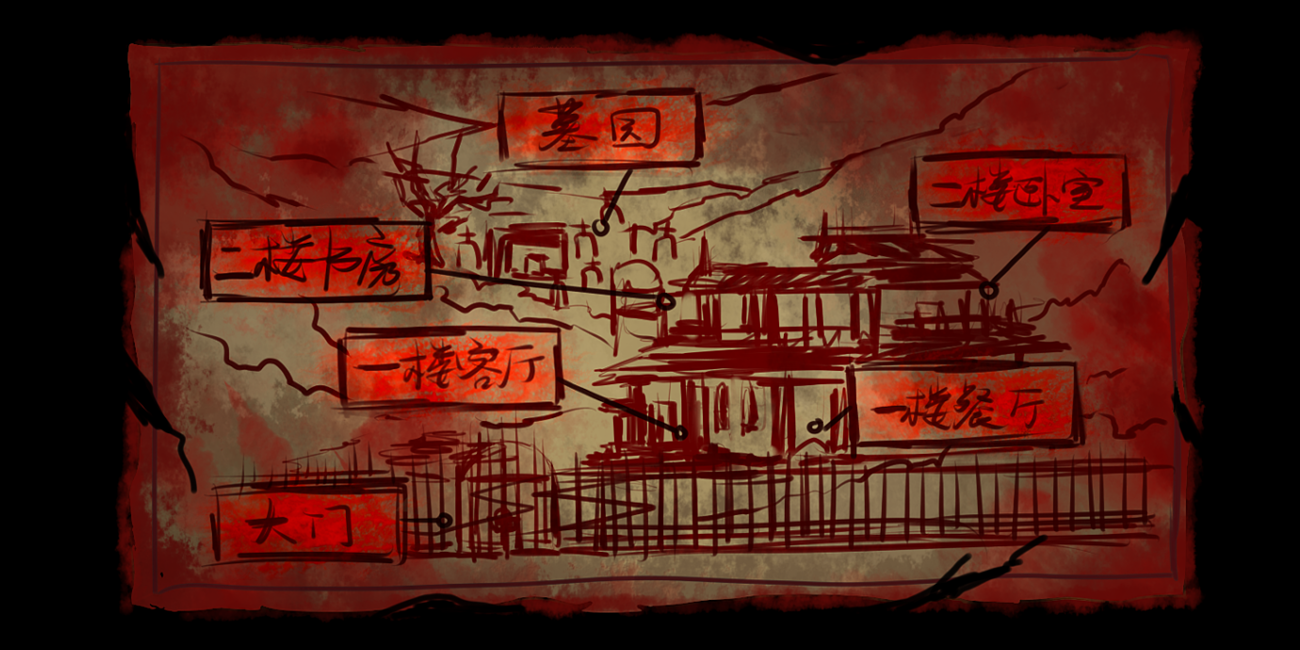 墓园
二楼卧室
二楼书房
一楼客厅
一楼餐厅
大门